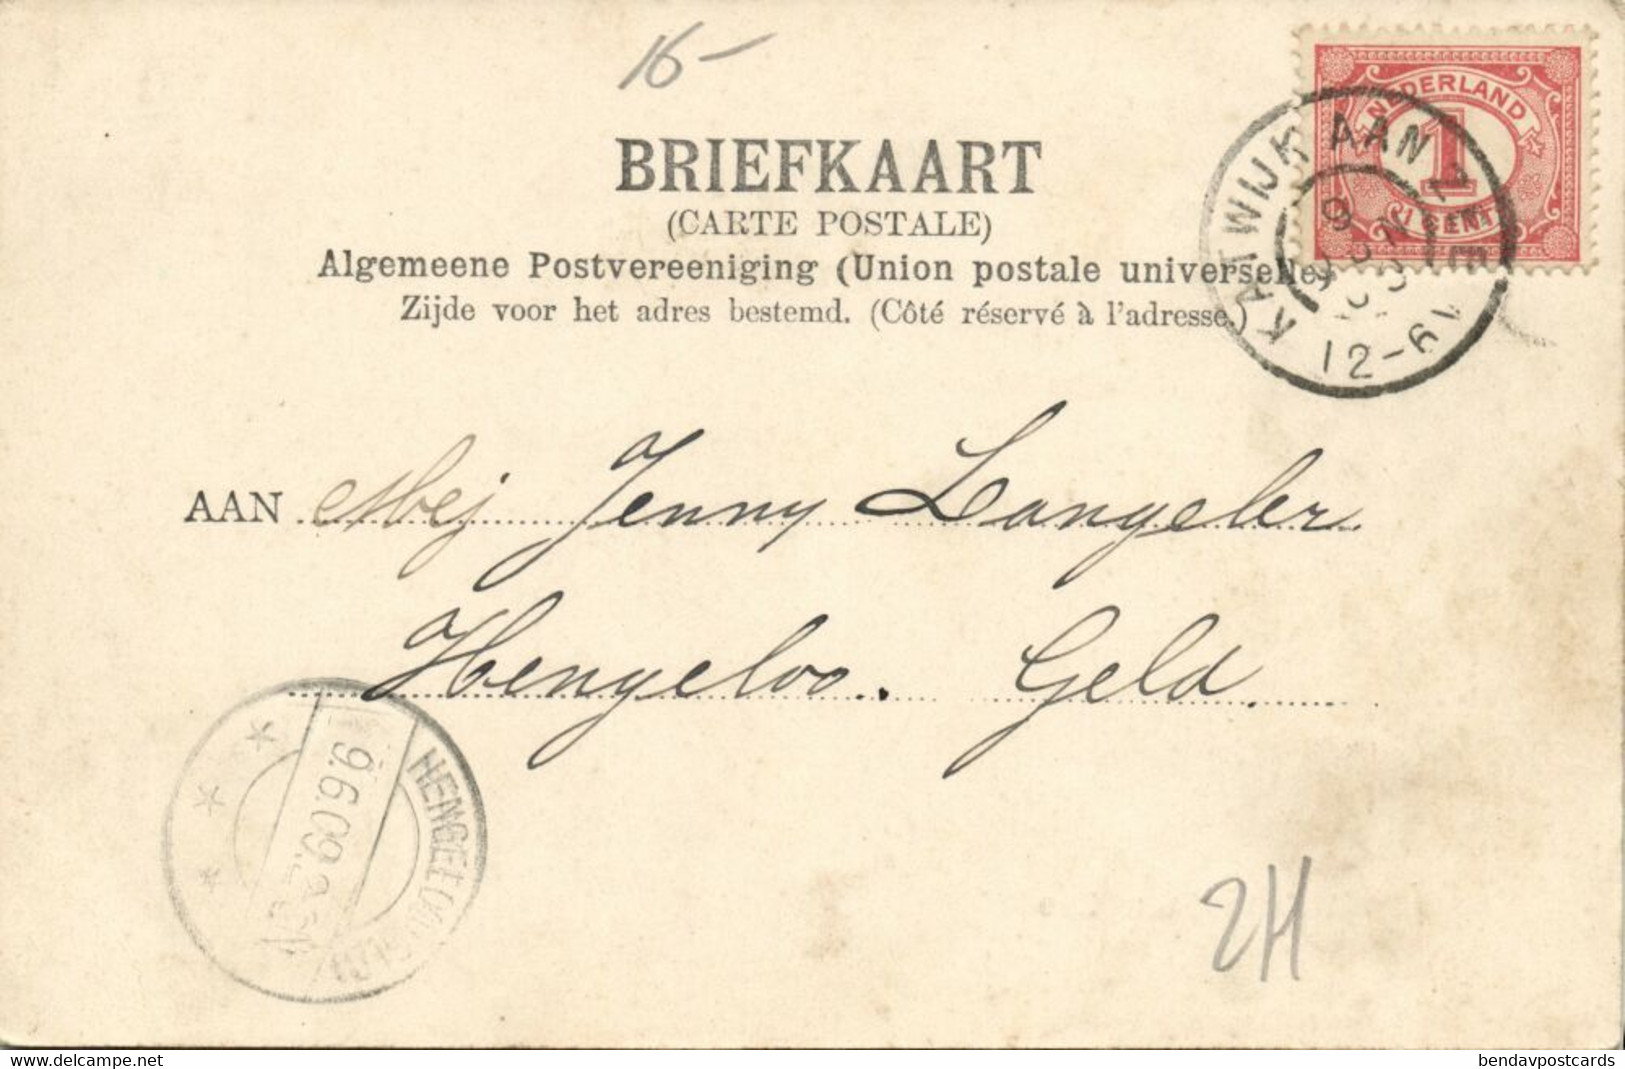 16-
NEDERLAND
1
1 CENT
KATWIJK AAN ZEE
12-6V
BRIEFKAART
(CARTE POSTALE)
Algemeene Postvereeniging (Union postale universelle)
Zijde voor het adres bestemd. (Côté réservé à l'adresse.)
AAN Mej Jenny Langeler
Hengeloo. Geld.
9.6.09
2H
www.delcampe.net
bendavpostcards